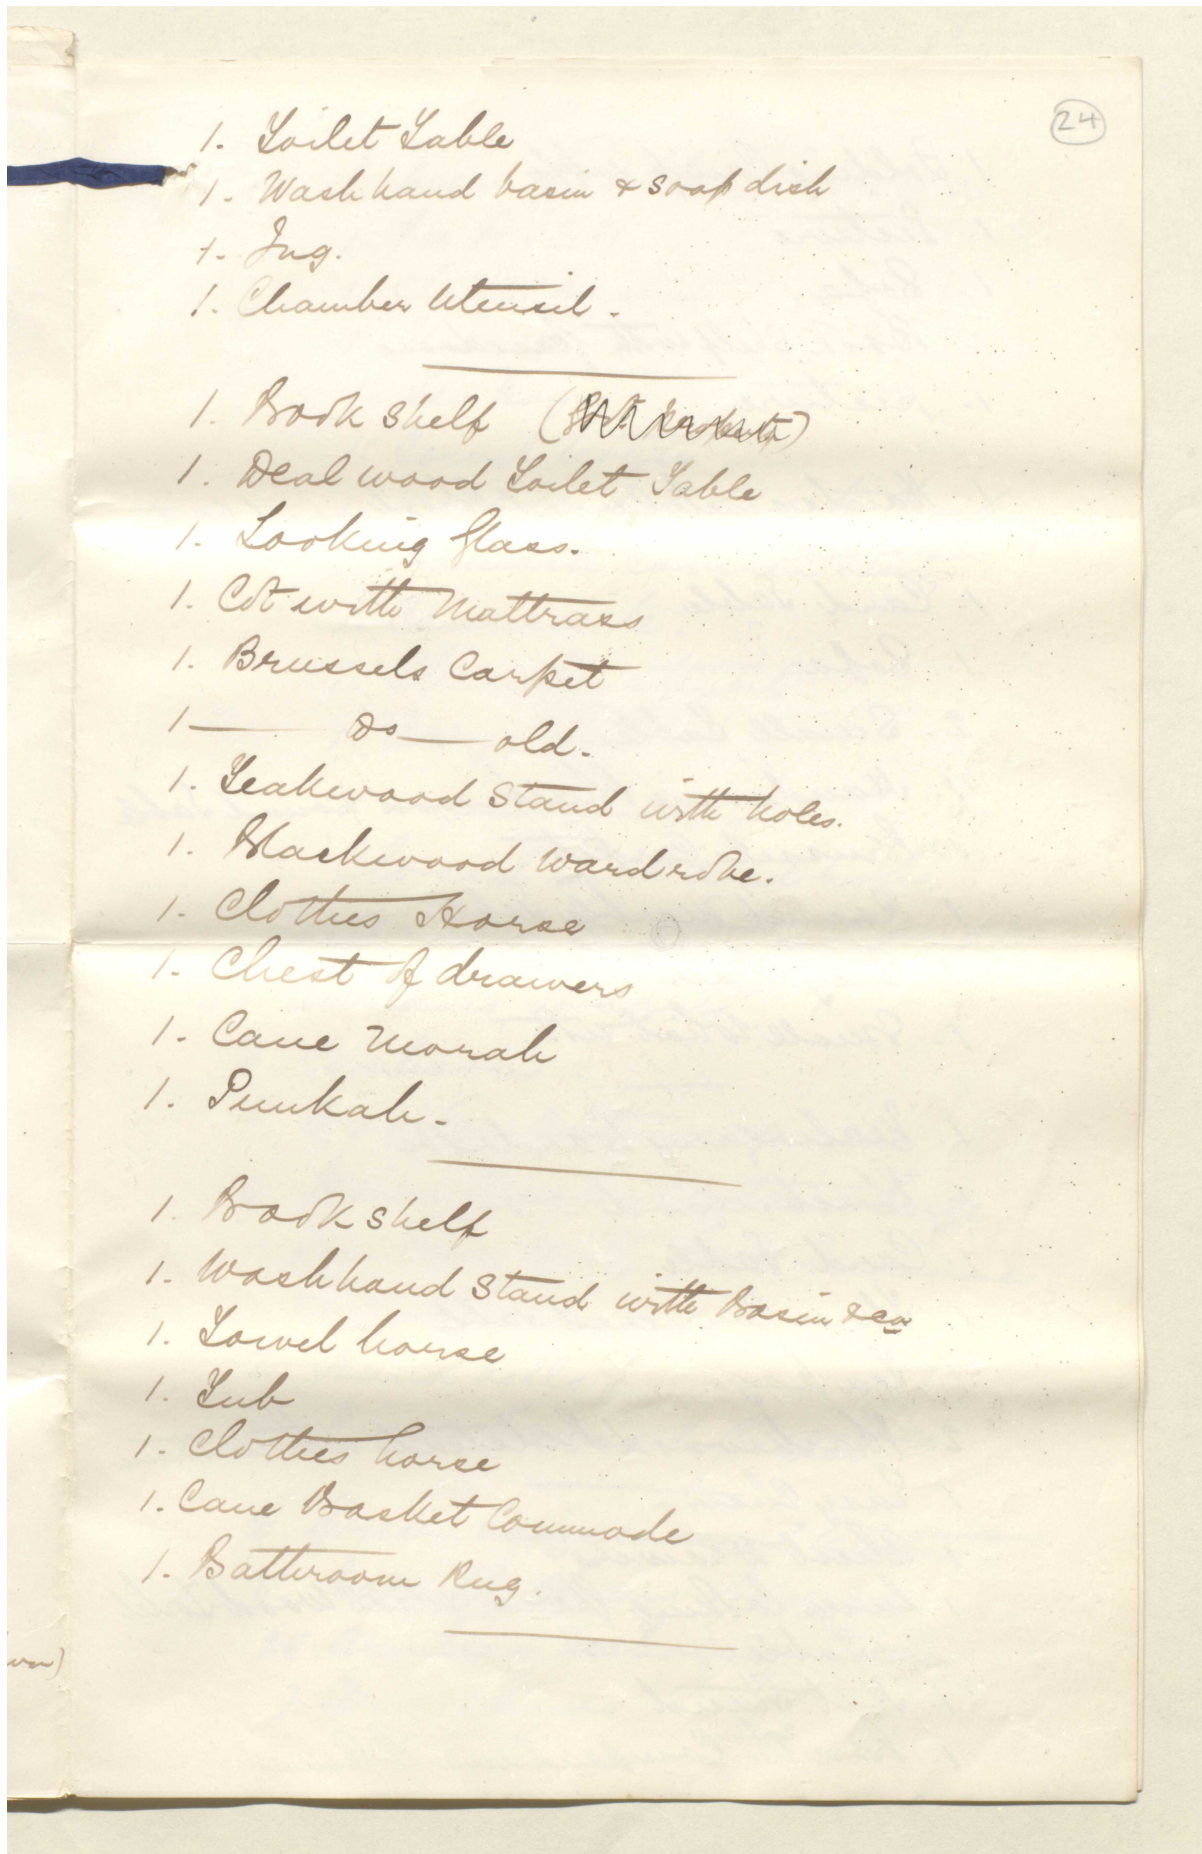 24
1. Toilet Table
1. Wash hand basin & soap dish
1. Jug.
1. Chamber Utensil.
1. Book shelf
1. Deal wood Toilet Table
1. Looking Glass.
1. Cot with Mattrass
1. Brussels Carpet
1 — Do — old.
1. Teakwood Stand with holes.
1. Blackwood wardrobe.
1. Clothes Horse
1. Chest of drawers
1. Cane Morah
1. Punkah.
1. Book shelf
1. Wash hand Stand with Basin &ca
1. Towel horse
1. Tub
1. Clothes horse
1. Cane Basket Commode
1. Bathroom Rug.